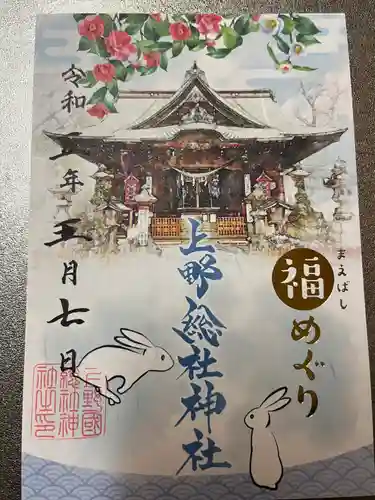 令和三年五月七日
上野総社神社
まえばし
福めぐり
上野國
総社神
社之印